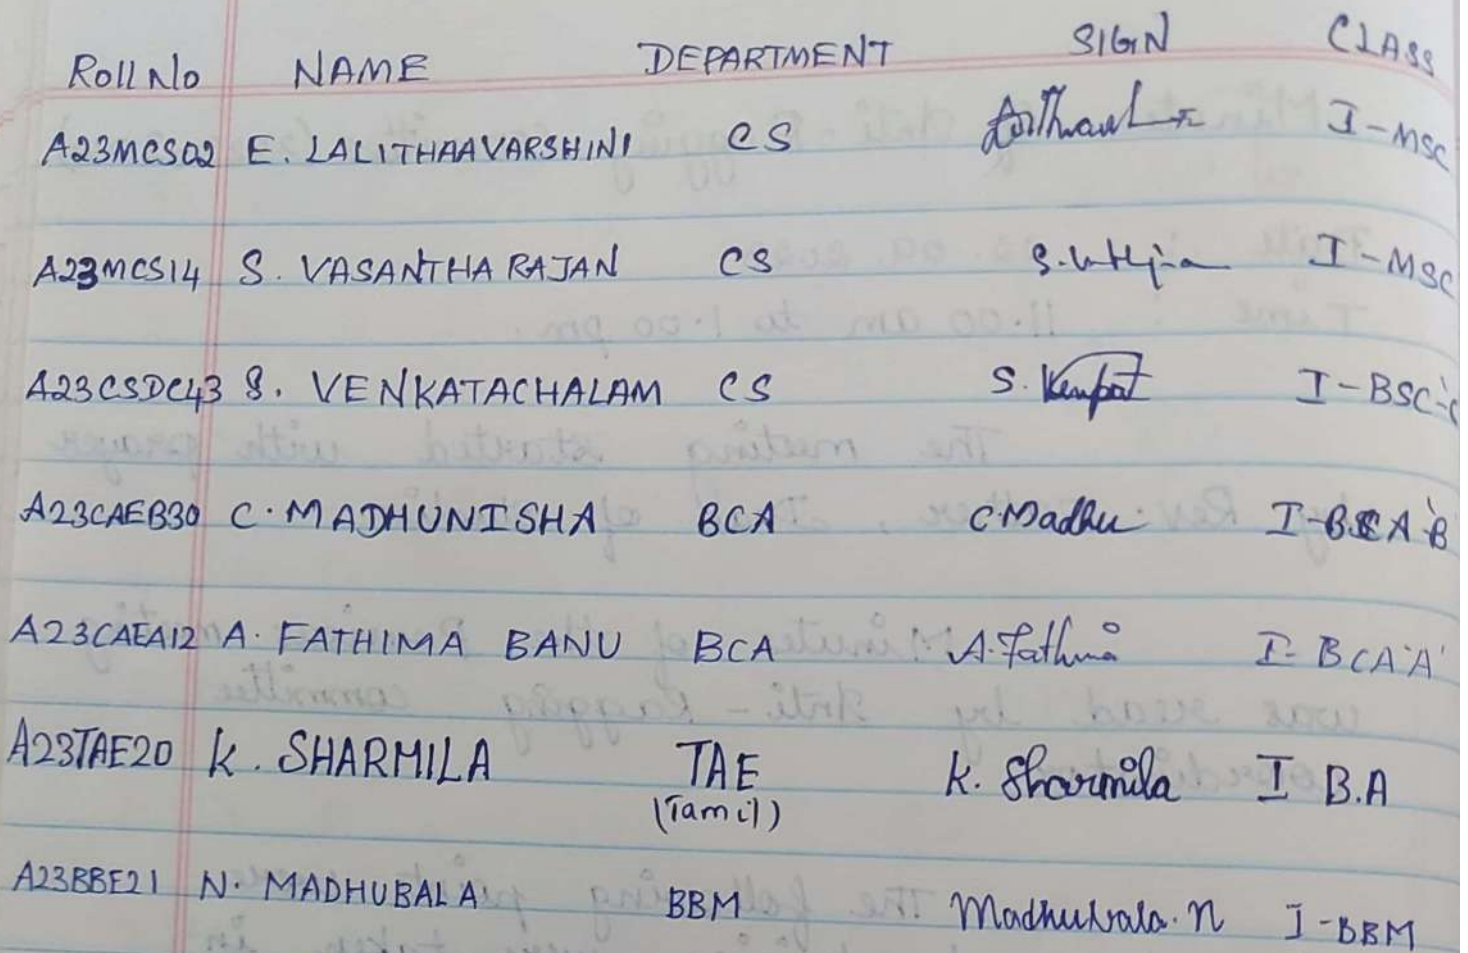 Roll No NAME DEPARTMENT SIGN CLASS
A23MCS02 E. LALITHAAVARSHINI CS I-MSC
A23MCS14 S. VASANTHA RAJAN CS I-MSC
A23CSDC43 S. VENKATACHALAM CS S. I-BSC-C
A23CAEB30 C. MADHUNISHA BCA C.Madhu I-BCA 'B
A23CAEA12 A. FATHIMA BANU BCA A.Fathima I-BCA 'A'
A23TAE20 K. SHARMILA TAE K. Sharmila I B.A
(Tamil)
A23BBE21 N. MADHUBALA BBM Madhubala.N I-BBM